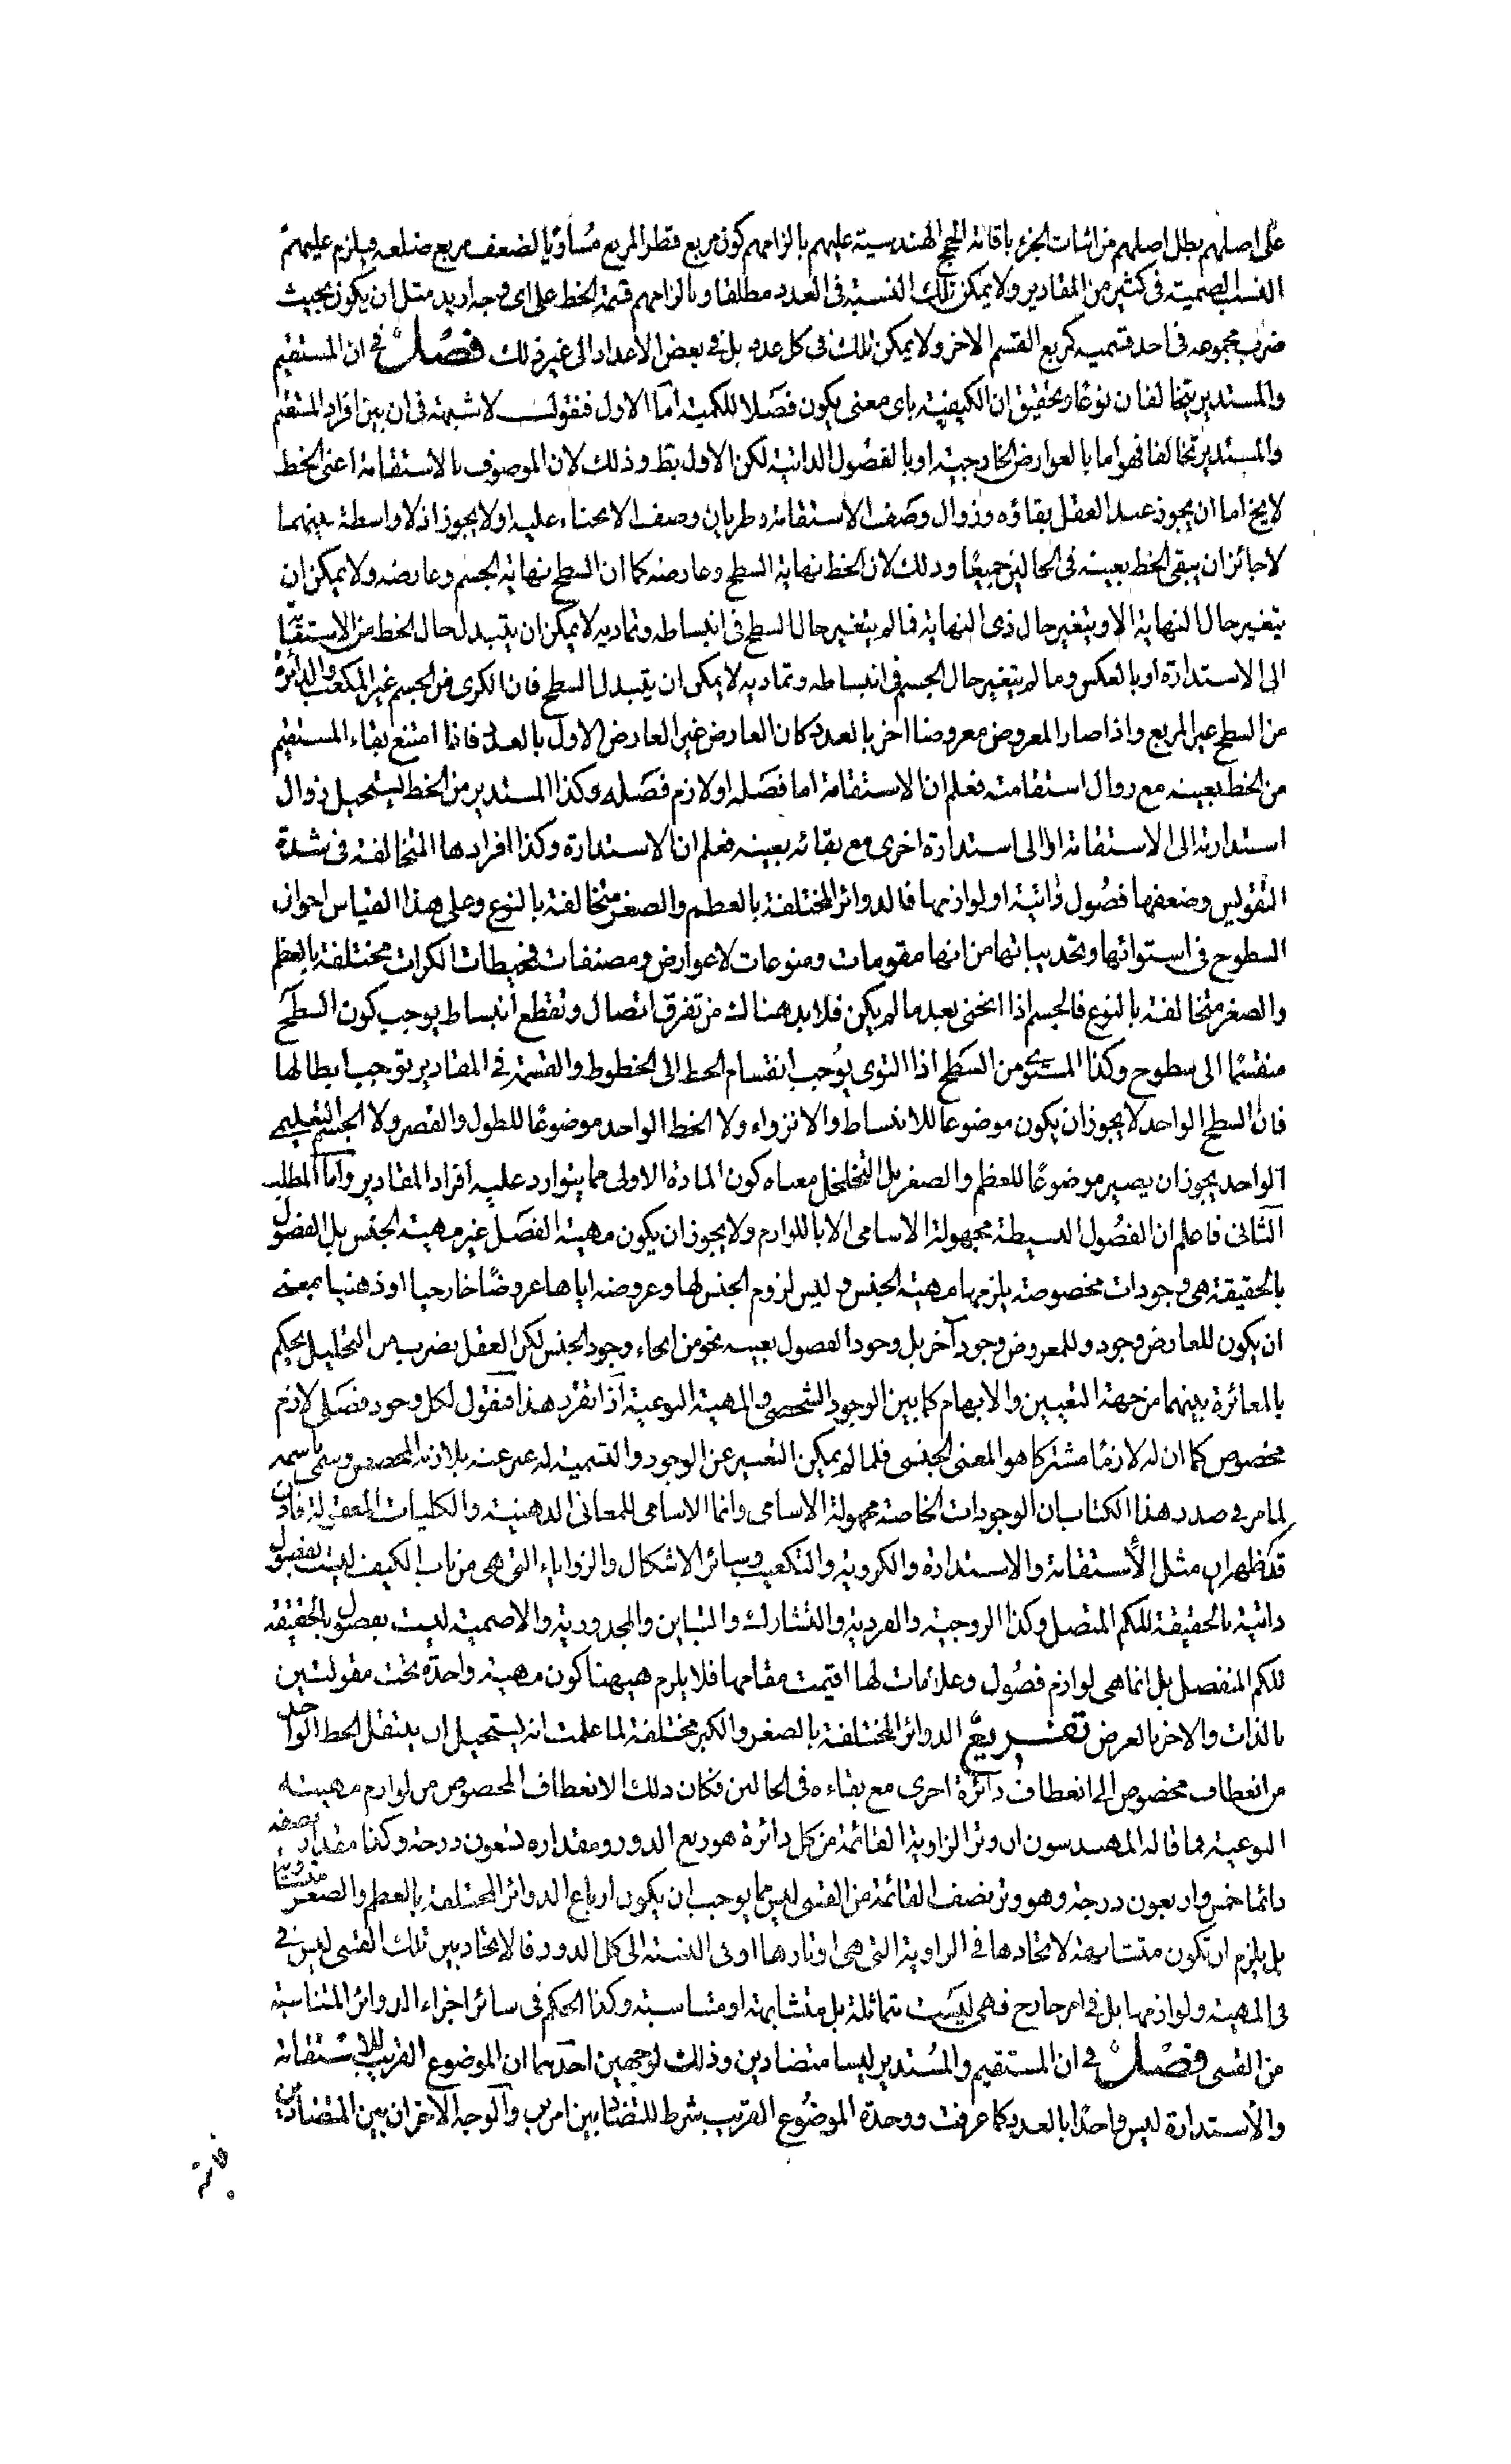 على اصلهم بطل اصلهم من اثبات الجزء باقامة الحجج الهندسية عليهم بالزامهم كون مربع قطر المربع مساويا لضعف مربع ضلعه فيلزم عليهم
النسب الصمية فى كثير من المقادير ولا يمكن تلك النسبة فى العدد مطلقا وبالزامهم قسمة الخط على اى وجه اريد مثل ان يكون بحيث
ضرب مجموعه فى احد قسميه كمربع القسم الاخر ولا يمكن ذلك فى كل عدد بل فى بعض الاعداد الى غير ذلك فصل فى ان المستقيم
والمستدير يتخالفان نوعا وتحقيق ان الكيفية باى معنى يكون فصلا للكمية اما الاول فنقول لا شبهة فى ان بين افراد المستقيم
والمستدير تخالفا فهو اما بالعوارض الخارجية او بالفصول الذاتية لكن الاول بط وذلك لان الموصوف بالاستقامة اعنى الخط
لا يخ اما ان يجوز عند العقل بقاؤه وزوال وصف الاستقامة وطريان وصف الانحناء عليه او لا يجوز اذ لا واسطة بينهما
لا جائز ان يبقى الخط بعينه فى الحالين جميعا وذلك لان الخط نهاية السطح وعارضه كما ان السطح نهاية الجسم وعارضه ولا يمكن ان
يتغير حال النهاية الا ويتغير حال ذى النهاية فما لم يتغير حال السطح فى انبساطه وتماديه لا يمكن ان يتبدل حال الخط من الاستقامة
الى الاستدارة او بالعكس وما لم يتغير حال الجسم فى انبساطه وتماديه لا يمكن ان يتبدل السطح فان الكرى من الجسم غير المكعب والدائرة
من السطح غير المربع واذا صار المعروض معروضا اخر بالعدد كان العارض غير العارض الاول بالعدد فاذا امتنع بقاء المستقيم
من الخط بعينه مع زوال استقامته فعلم ان الاستقامة اما فصله او لازم فصله وكذا المستدير من الخط يستحيل زوال
استدارته الى الاستقامة او الى استدارة اخرى مع بقائه بعينه فعلم ان الاستدارة وكذا افرادها المتخالفة فى شدة
التقويس وضعفها فصول ذاتية او لوازمها فالدوائر المختلفة بالعظم والصغر متخالفة بالنوع وعلى هذا القياس احوال
السطوح فى استوائها وتحديباتها من انها مقومات ومنوعات لا عوارض ومصنفات فمحيطات الكرات مختلفة بالعظم
والصغر متخالفة بالنوع فالجسم اذا انحنى بعد ما لم يكن فلا بد هناك من تفرق اتصال وتقطع انبساط يوجب كون السطح
منقسما الى سطوح وكذا المستوى من السطح اذا التوى يوجب انقسام الخط الى الخطوط والقسمة فى المقادير توجب ابطالها
فان السطح الواحد لا يجوز ان يكون موضوعا للانبساط والانزواء ولا الخط الواحد موضوعا للطول والقصر ولا الجسم التعليمى
الواحد يجوز ان يصير موضوعا للعظم والصغر بل التخلخل معناه كون المادة الاولى مما يتوارد عليه افراد المقادير واما المطلب
الثانى فاعلم ان الفصول البسيطة مجهولة الاسامى الا باللوازم ولا يجوز ان يكون مهية الفصل غير مهية الجنس بل الفصول
بالحقيقة هى وجودات مخصوصة يلزمها مهية الجنس وليس لزوم الجنس لها وعروضه اياها عروضا خارجيا او ذهنيا بمعنى
ان يكون للعارض وجود وللمعروض وجود آخر بل وجود الفصول بعينه نحو من انحاء وجود الجنس لكن العقل بضرب من التحليل يحكم
بالمغائرة بينهما من جهة التعيين والابهام كما بين الوجود الشخصى والمهية النوعية اذا تقرر هذا فنقول لكل وجود فصلى لازم
مخصوص كما ان له لازما مشتركا هو المعنى الجنسى فلما لم يمكن التعبير عن الوجود والتسمية له عبر عنه بلازمه المخصص وسمى باسمه
لما مر فى صدر هذا الكتاب بان الوجودات الخاصة مجهولة الاسامى وانما الاسامى للمعانى الذهنية والكليات المعقولة فاذن
قد ظهر ان مثل الاستقامة والاستدارة والكروية والتكعيب وسائر الاشكال والزواياء التى هى من باب الكيف ليست بفصول
ذاتية بالحقيقة للكم المتصل وكذا الزوجية والفردية والتشارك والتباين والمجذورية والاصمية ليست بفصول بالحقيقة
للكم المنفصل بل انما هى لوازم فصول وعلامات لها اقيمت مقامها فلا يلزم هيهنا كون مهية واحدة تحت مقولتين
بالذات والاخر بالعرض تفريع الدوائر المختلفة بالصغر والكبر مختلفة لما علمت انه يستحيل ان ينتقل الخط الواحد
من انعطاف مخصوص الى انعطاف دائرة اخرى مع بقاءه فى الحالين فكان ذلك الانعطاف المخصوص من لوازم مهيته
النوعية فما قاله المهندسون ان وتر الزاوية القائمة من كل دائرة هو ربع الدور ومقداره تسعون درجة وكذا مقدار نصفه
دائما خمس واربعون درجة وهو وتر نصف القائمة من القسى ليس مما يوجب ان يكون ارباع الدوائر المختلفة بالعظم والصغر متساوية
بل يلزم ان تكون متشابهة لاتحادها فى الزاوية التى هى اوتارها او فى النسبة الى كل الدور فالاتحاد بين تلك القسى ليس فى
فى المهية ولوازمها بل فى امر خارج فهى ليست متماثلة بل متشابهة او متناسبة وكذا الحكم فى سائر اجزاء الدوائر المتناسبة
من القسى فصل فى ان المستقيم والمستدير ليسا متضادين وذلك لوجهين احدهما ان الموضوع القريب للاستقامة
والاستدارة ليس واحدا بالعدد كما عرفت ووحدة الموضوع القريب شرط للتضاد بين امرين والوجه الاخر ان بين المتضادين